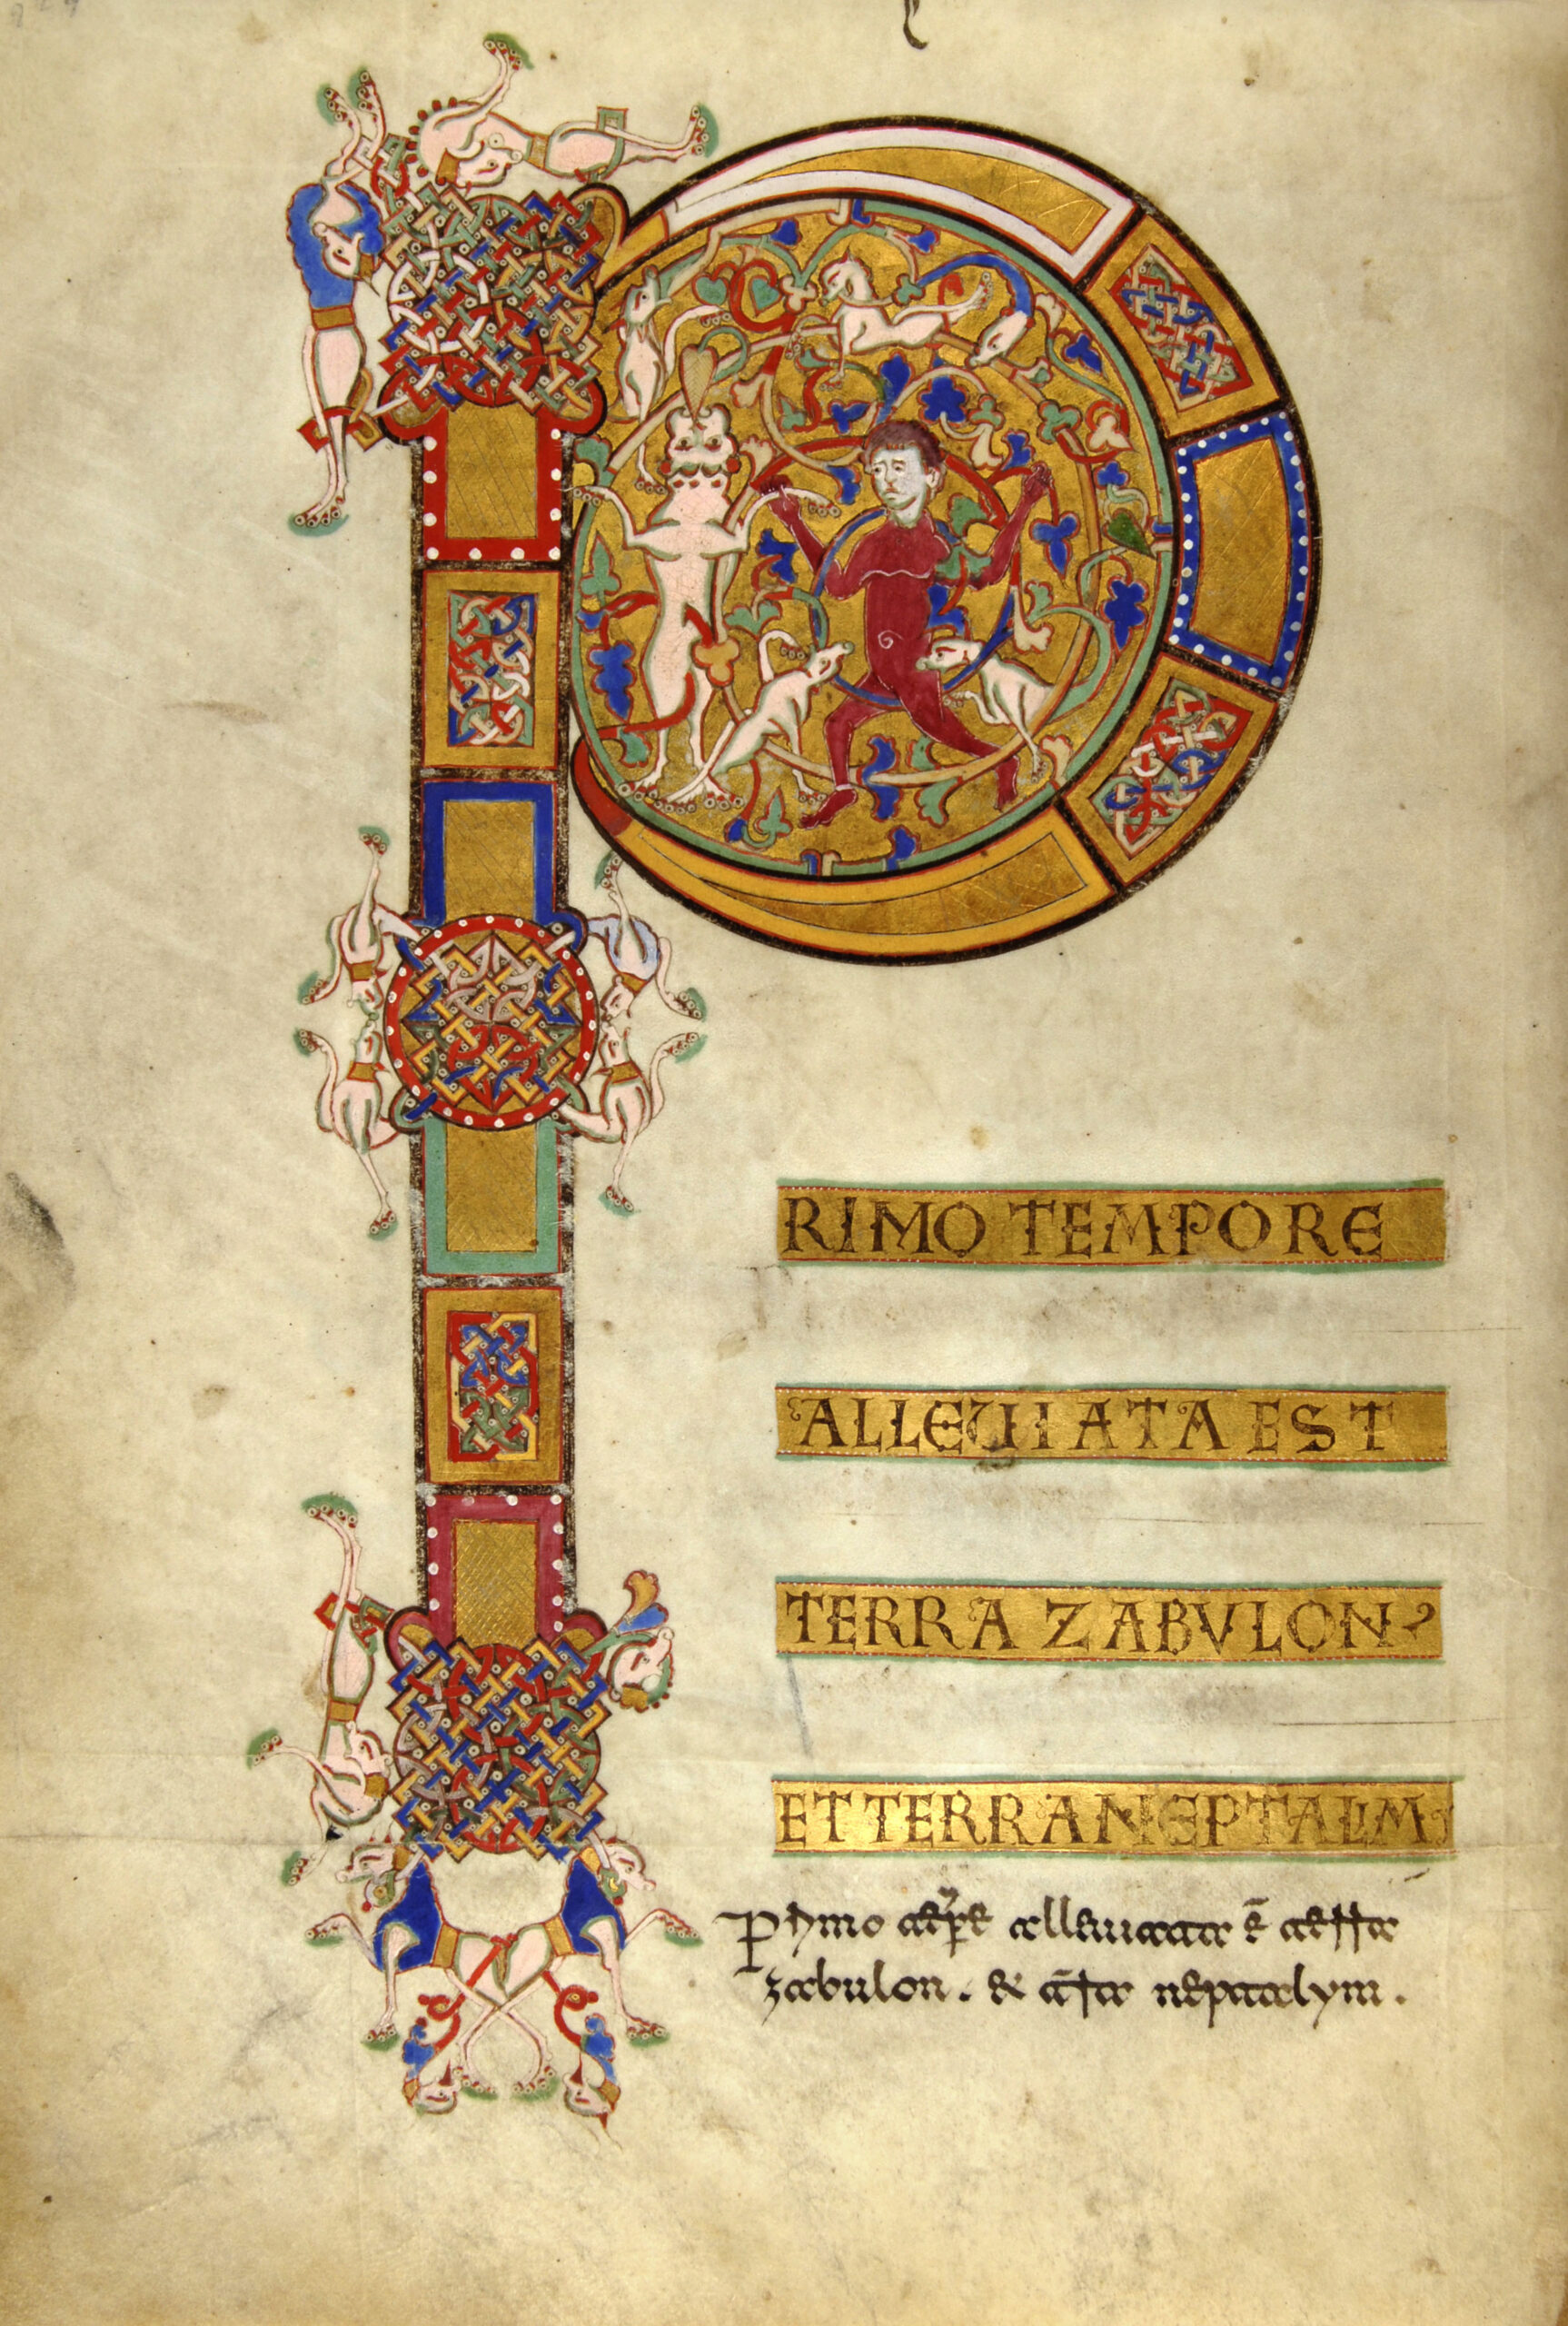 P
RIMO TEMPORE
ALLEUIATA EST
TERRA ZABVLON
ET TERRA NEPTALIM
Primo tꝑe alleuiata ē terra
zabulon. & t̄ra neptalym.